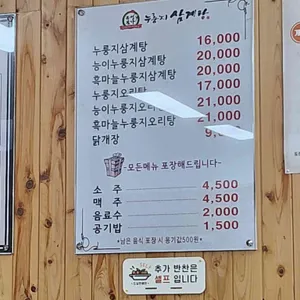 누룽지 삼계탕
누룽지삼계탕 16,000
능이누룽지삼계탕 20,000
흑마늘누룽지삼계탕 20,000
누룽지오리탕 17,000
능이누룽지오리탕 21,000
흑마늘누룽지오리탕 21,000
닭개장
-모든메뉴 포장해드립니다-
소주 4,500
맥주 4,500
음료수 2,000
공기밥 1,500
*남은 음식 포장 시 용기값500원*
추가 반찬은
셀프 입니다